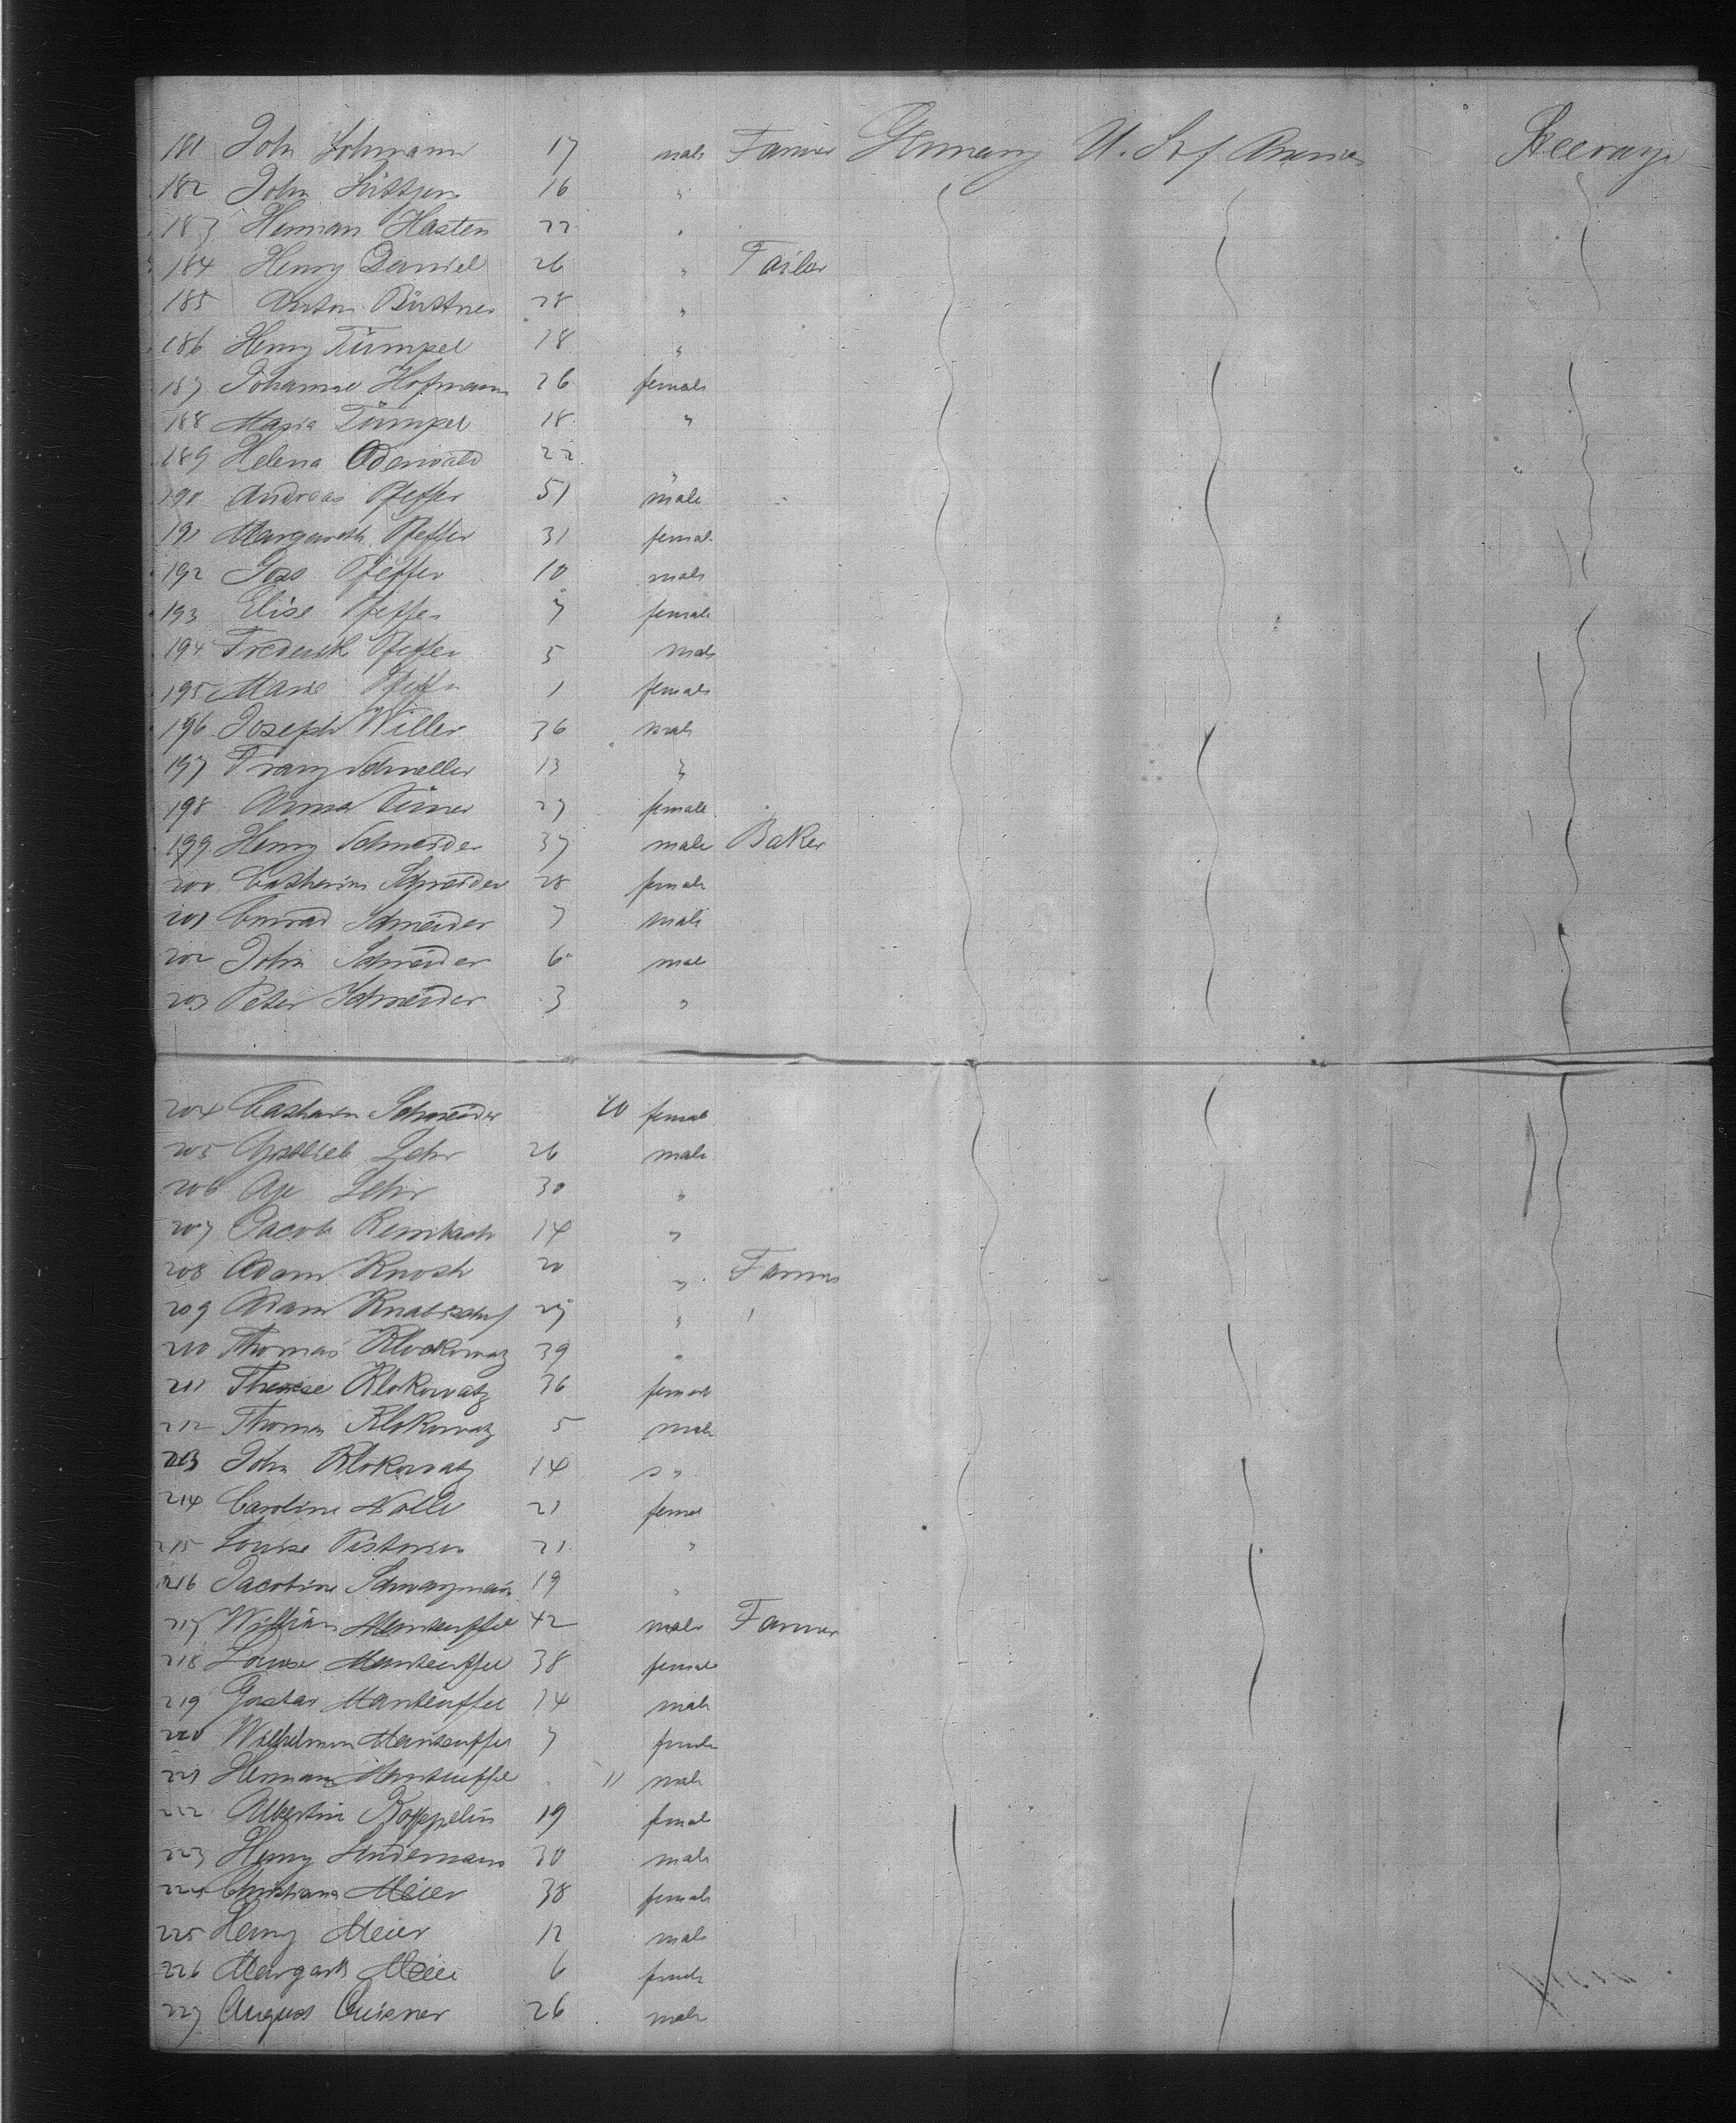 181 John Lohmann 17 male Farmer Germany U. S. of America Steerage
182 John Lüttjen 16 "
183 Herman Hasten 22 "
184 Henry Daniel 26 " Tailor
185 Anton Büttner 28 "
186 Henry Tümpel 18 "
187 Johanne Hofmann 26 female
188 Maria Tümpel 18 "
189 Helena Odenwald 22 "
190 Andreas Pfeffer 51 male
191 Margareth Pfeffer 31 female
192 Pfeffer 10 male
193 Elise Pfeffer 7 female
194 Frederik Pfeffer 5 male
195 Marie Pfeffer 1 female
196 Joseph Willer 36 male
197 Franz Schneller 13 "
198 Anna 27 female
199 Henry Schneider 37 male Baker
200 Catharine Schneider 28 female
201 Conrad Schneider 7 male
202 John Schneider 6 male
203 Peter Schneider 3 "
204 Catharin Schneider 10 female
205 Gottlieb Lehr 26 male
206 Lehr 30 "
207 Jacob Rembach 14 "
208 Adam 20 " Farmer
209 Adam 27 " "
210 Thomas Klockowatz 39 "
211 Therese Klokowatz 36 female
212 Thomas Klokowatz 5 male
213 John Klokowatz 14 "
214 Caroline Nolle 21 female
215 Louise Pistorius 21 "
216 Jacobine Schwarzmann 19 "
217 William Manteuffel 42 male Farmer
218 Louise Manteuffel 38 female
219 Gustav Manteuffel 14 male
220 Wilhelmine Manteuffel 7 female
221 Herman Manteuffel 11 male
222 Albertine 19 female
223 Henry Lindemann 30 male
224 Christiana Meier 38 female
225 Henry Meier 12 male
226 Margareth Meier 6 female
227 August 26 male